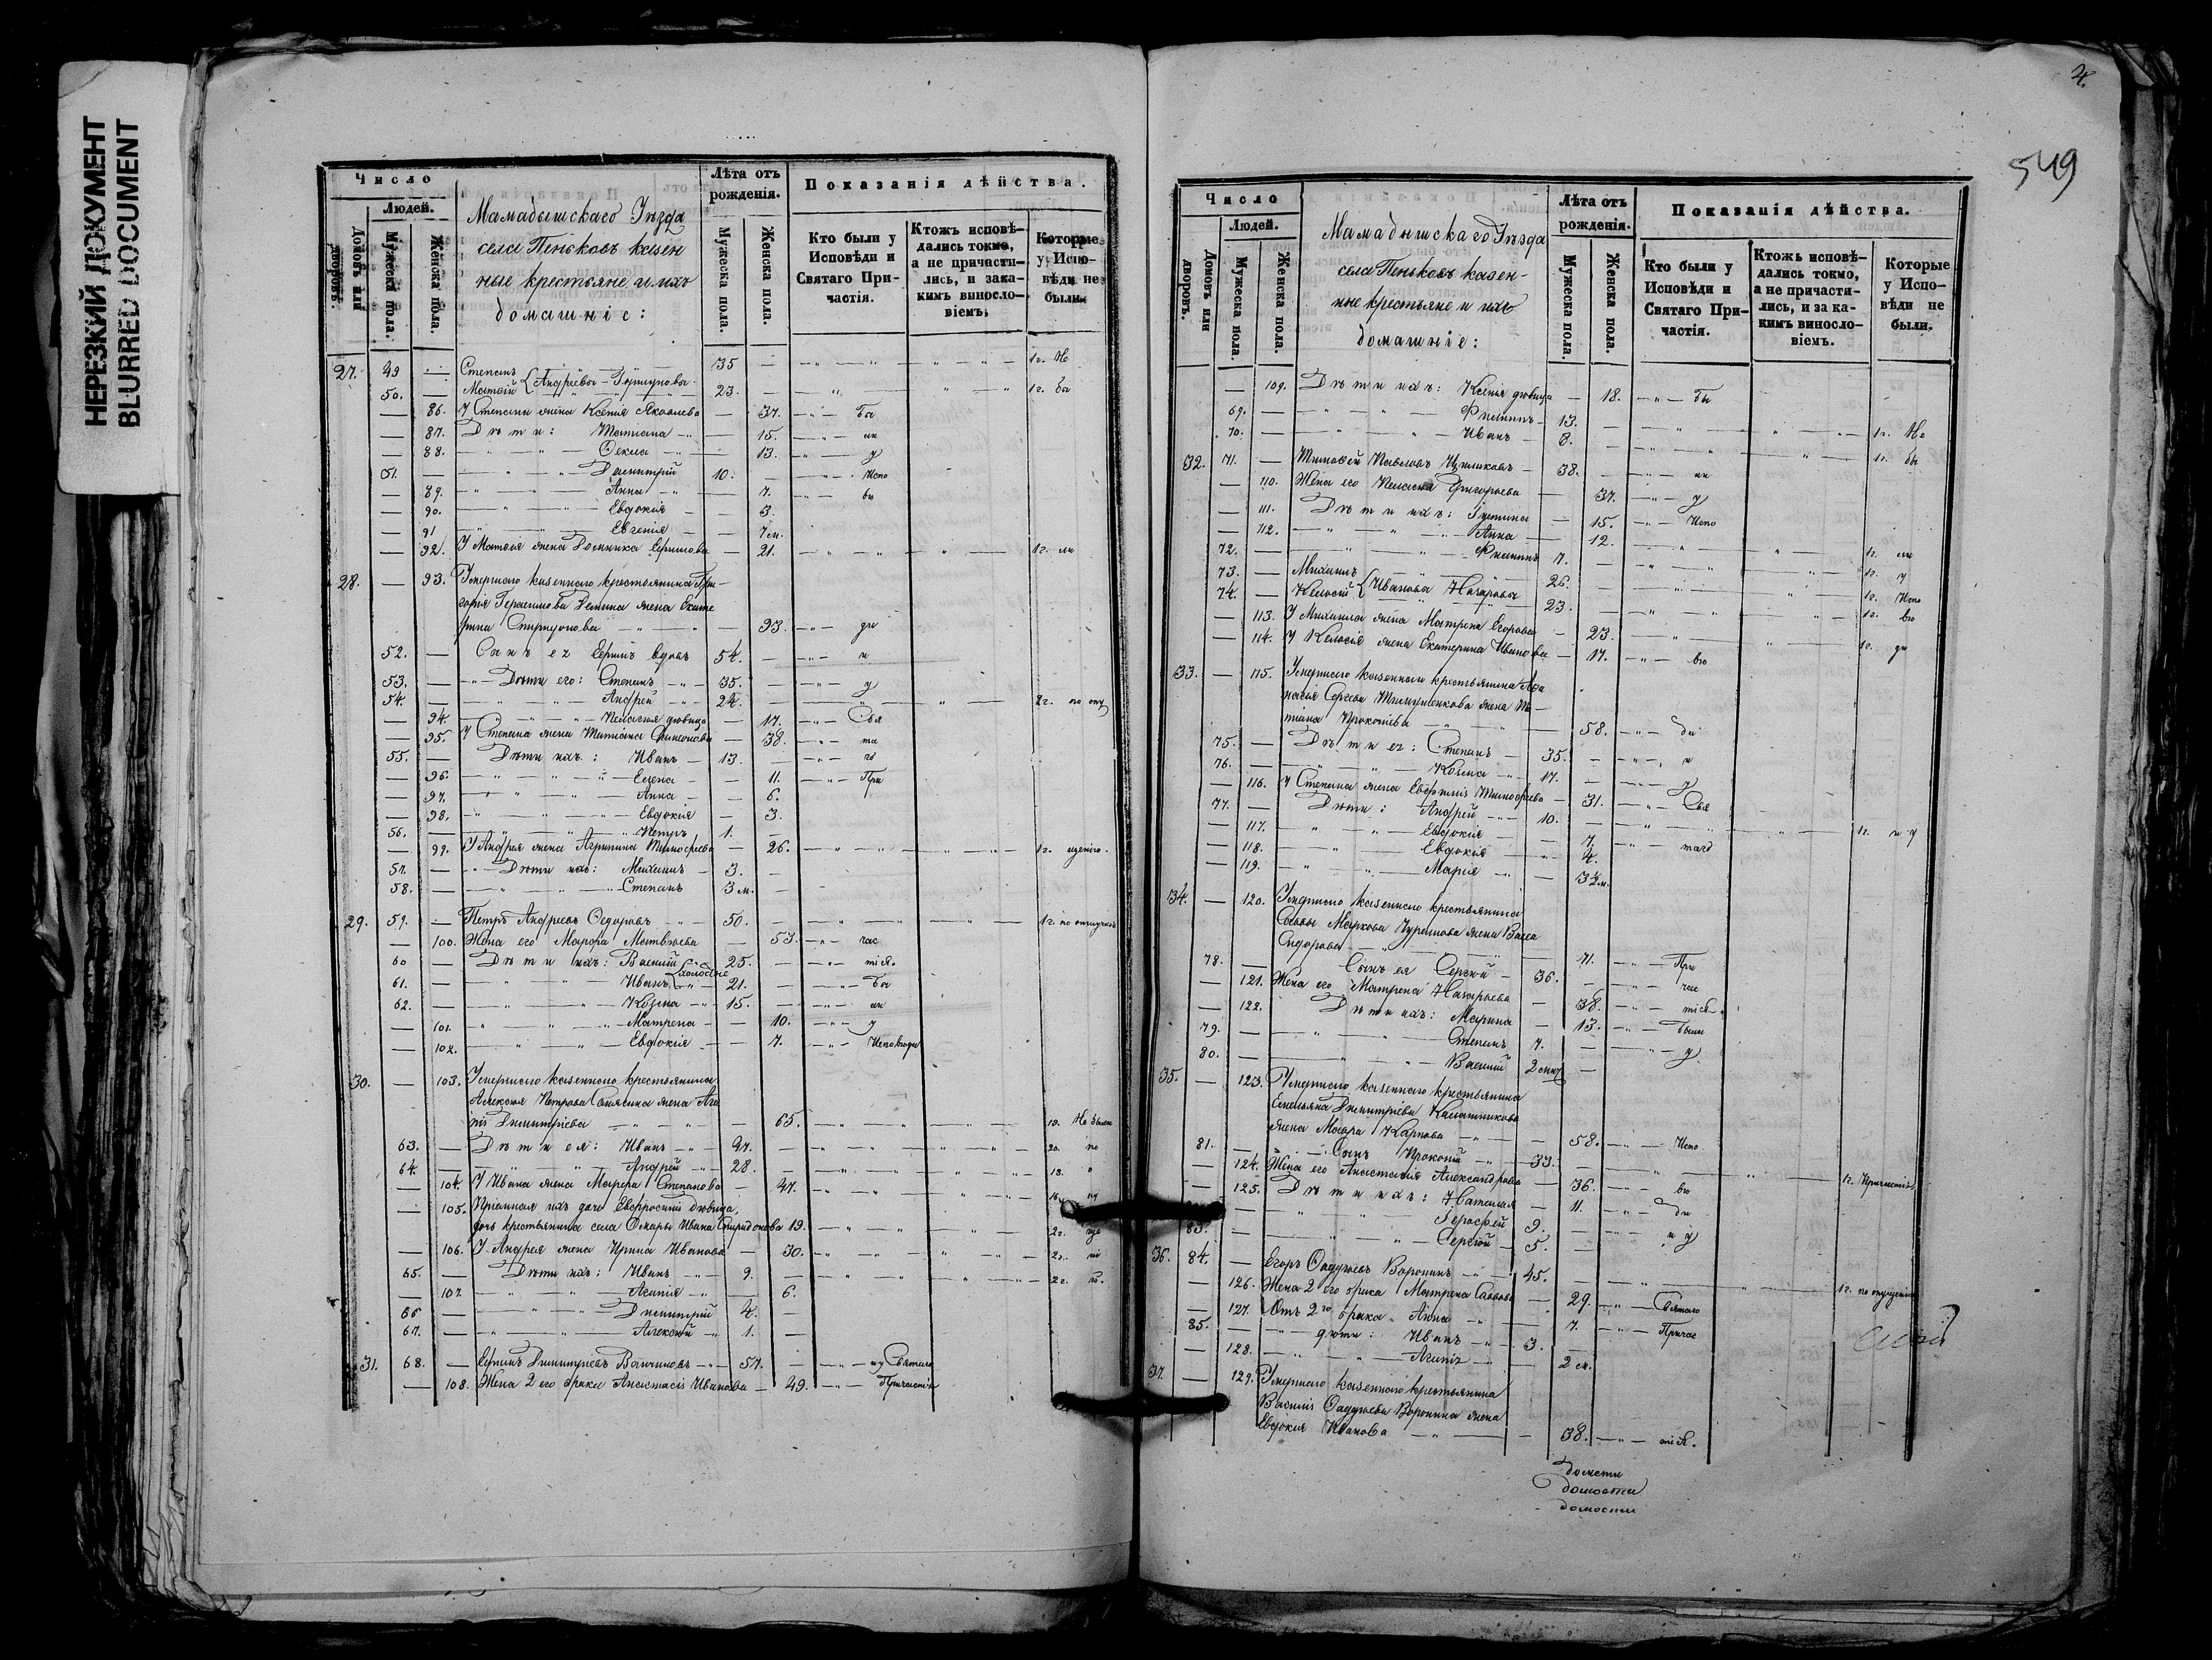 НЕРЕЗКИЙ ДОКУМЕНТ
BLURRED DOCUMENT
Число
Людей.
Домовъ или дворовъ.
Мужеска пола.
Женска пола.
Мамадышскаго Уѣзда
села Пеньковъ казен
ные крестьяне и ихъ
домашніе:
Лѣта отъ рожденія.
Мужеска пола.
Женска пола.
Показанія дѣйства.
Кто были у Исповѣди и Святаго Причастія.
Ктожъ исповѣдались токмо, а не причастились, и за какимъ винословіемъ.
Которые у Исповѣди не были.
27. 49 — Степанъ 35 — 1 г. Не
50. — Матвій {Андреевы 23. — 1 г. бы
— 86. У Степана жена Ксенія Яковлева — 37. Бы
— 87. Дѣти: Татіана — 15. ли
— 88. Ѳекла — 13. у
51. — Димитрій 10. — Испо
— 89. Анна — 7. вѣ
— 90. Евдокія — 3.
— 91 Евгенія — 7 м.
— 92. У Матвія жена Домника Ефимова — 21. 1 г. ли
28. — 93. Умершаго казеннаго крестьянина Гри-
горія Герасимова Демина жена Екате
рина Спиридонова — 93. ди
52. — Сынъ ея Ефимъ вдовъ 54. — и
53. — Дѣти его: Степанъ 35. — у
54. — Андрей 24. — 2 г. по опу
— 94. Пелагія дѣвица — 17. Свя
— 95. У Степана жена Татіана Филиппова — 38. та
55. — Дѣти ихъ: Иванъ 13. — го
— 96. Елена — 11. При
— 97. Анна — 6.
— 98. Евдокія — 3.
56. — Петръ 1. —
— 99. У Андрея жена Агрипина Тимофеева — 26. 1 г. щенію.
57. — Дѣти ихъ: Михаилъ 3. —
58. — Степанъ 3 м. —
29. 59. — Петръ Андреевъ Ѳедоровъ 50. — 1 г. по отлучкѣ
— 100. Жена его Марфа Матвѣева — 53. час
60 — Дѣти ихъ: Василій 25. — тія.
61. — Иванъ {холостые 21. — Бы
62. — Козма 15. — ли
— 101. Матрена — 10. у
— 102. Евдокія — 7. Исповѣди
30. — 103. Умершаго казеннаго крестьянина
Алексія Петрова жена Ага
пія Димитріева — 65. 1 г. Не были
63. — Дѣти ея: Иванъ 47. — 2 г. по
64. — Андрей 28. — 1 г. о
— 104. У Ивана жена Марфа Степанова — 47. 1 г. пу
— 105. Пріемная ихъ дочь Евфросинія дѣвица,
дочь крестьянина села Омары Ивана Спиридонова 19. 2 г. ще
— 106. У Андрея жена Ирина Иванова — 30. 2 г. ні
65. — Дѣти ихъ: Иванъ 9. — 2 г. ю.
— 107. Агапія — 6.
66 — Димитрій 4. —
67. — Алексѣй 1. —
31. 68. — Ефимъ Димитріевъ 57. — Святаго
— 108. Жена 2 его брака Анастасія Иванова — 49. Причастія
4.
549
Число
Людей.
Домовъ или дворовъ.
Мужеска пола.
Женска пола.
Мамадышскаго Уѣзда
села Пеньковъ казен-
ные крестьяне и ихъ
домашніе:
Лѣта отъ рожденія.
Мужеска пола.
Женска пола.
Показанія дѣйства.
Кто были у Исповѣди и Святаго Причастія.
Ктожь исповѣдались токмо, а не причастились, и за какимъ винословіемъ.
Которые у Исповѣди не были.
— 109. Дѣти ихъ: Ксенія дѣвица — 18. Бы
69. — Филиппъ 13. — 1 г. Не
70. — Иванъ 8. — 1 г. бы
32. 71. — Тимофей Павловъ 38. — ли
— 110. Жена его Пелагія Григорьева — 37. у
— 111. Дѣти ихъ: Іустина — 15. Испо
— 112. Анна — 12. 1 г. ли
72. — Филиппъ 7. — 1 г. у
73. — Михаилъ 26. — 1 г. Испо
74. — {Ивановы Назаровы 23. — 1 г. вѣ
— 113. У Михаила жена Матрена Егорова — 23. 1 г. ди
— 114. жена Екатерина Иванова — 17. вѣ
33. — 115. Умершаго казеннаго крестьянина Аѳа
насія Сергеева жена Та-
тіана Прокопіева — 58. ди
75. — Дѣти ея: Степанъ 35. — и
76. — Козма 17. — у
— 116. У Степана жена Евфимія Тимофеева — 31. Свя
77. — Дѣти: Андрей 10. — 1 г. и у
— 117. Евдокія — 7. таго
— 118. Евдокія — 4.
— 119. Марія — 3 м.
34. — 120. Умершаго казеннаго крестьянина
Саввы Маркова жена Васса
Сидорова — 71. При
78. — Сынъ ея Сергій 36. — час
— 121. Жена его Матрена Назарьева — 38. тія.
— 122. Дѣти ихъ: Марина — 13. Были
79. — Степанъ 7. — у
80. — Василій 2 —
35. — 123. Умершаго казеннаго крестьянина
Емельяна Димитріева Калашникова
жена Мавра Карпова — 58. Испо
81. — Сынъ Прокопій 33. — 1 г. Причастія
— 124. Жена его Анастасія Александрова — 36. вѣ
— 125. Дѣти ихъ: Наталія — 11. ди
— Ерофѣй 9. — и у
83. — Сергій 5. —
36. 84. — Егоръ Ѳадѣевъ Воронинъ 45. — 1 г. по опущенію
— 126. Жена 2 его брака Матрена Саввова — 29. Святаго
— 127. Отъ 2го брака Анна — 7. Причас
85. — дѣти: Иванъ 3. —
— 128. Агапія — 2 м.
37. — 129. Умершаго казеннаго крестьянина
Василія Ѳадѣева Воронина жена
Евдокія Иванова — 38. тія.